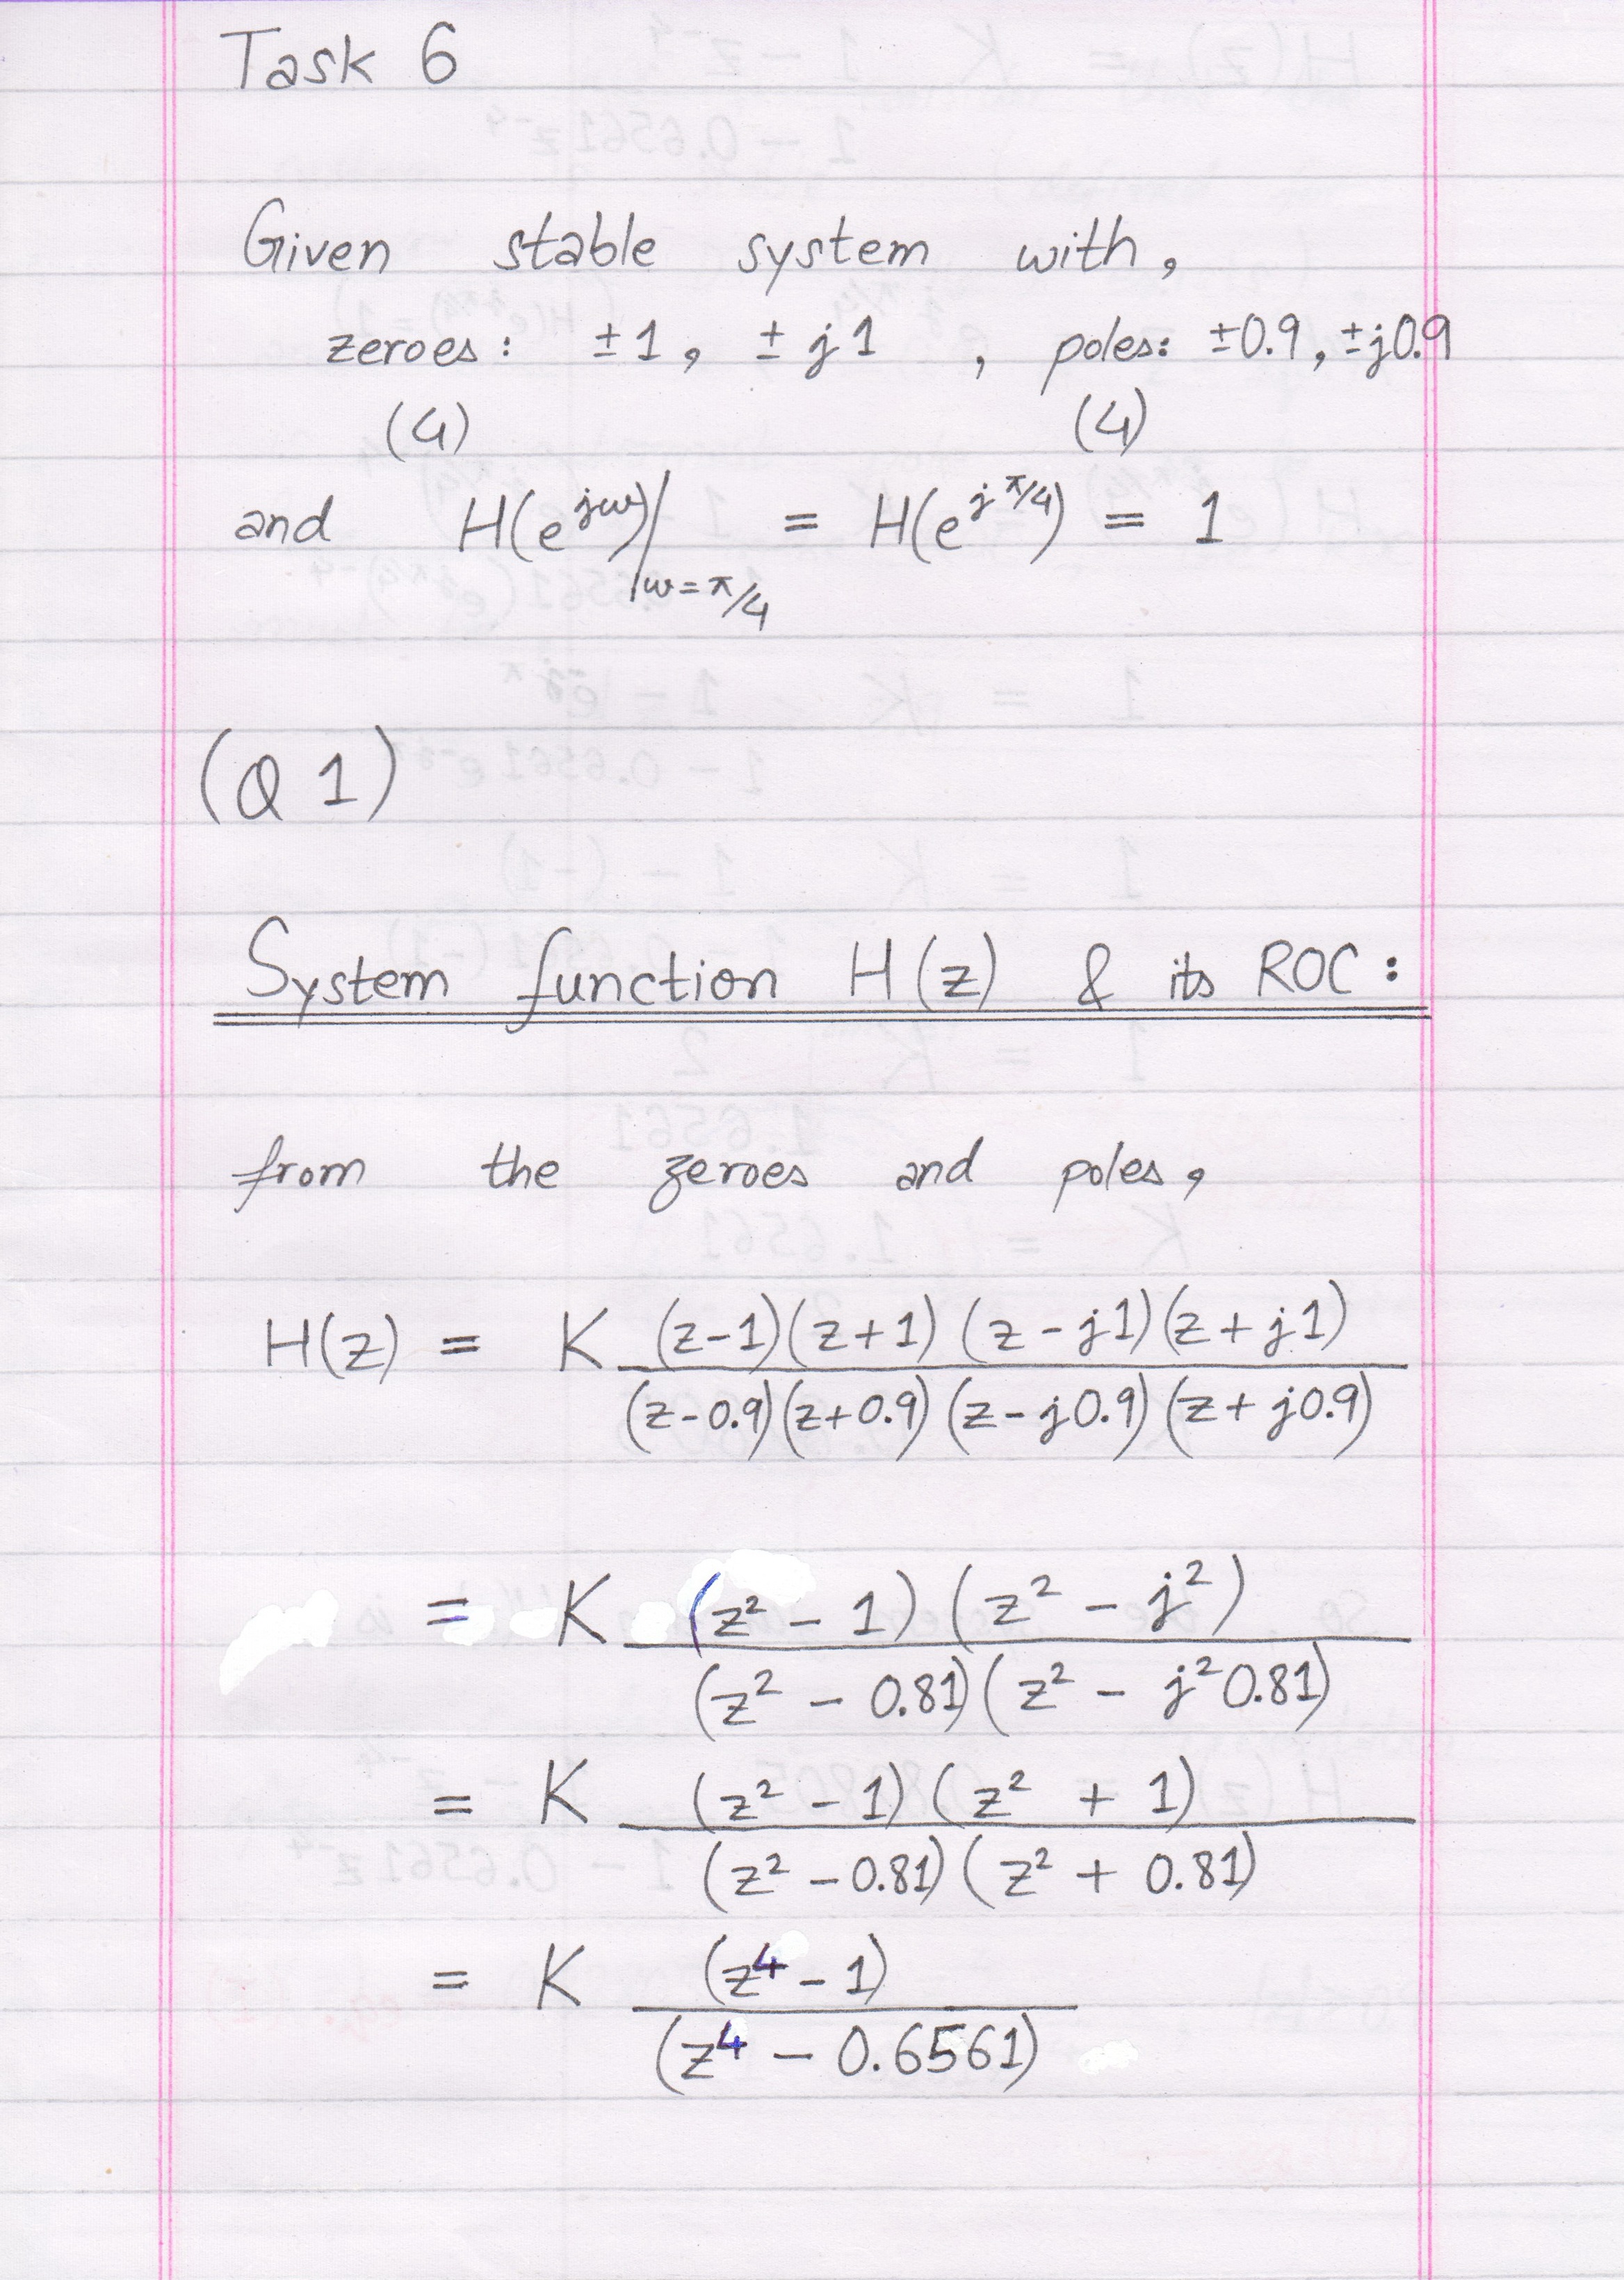 Task 6
Given stable system with,
zeroes: ±1, ±j1 , poles: ±0.9, ±j0.9
(4) (4)
and H(e^jω)|ω=π/4 = H(e^jπ/4) = 1
(Q 1)
System function H(z) & its ROC:
from the zeroes and poles,
H(z) = K (z-1)(z+1)(z-j1)(z+j1)
(z-0.9)(z+0.9)(z-j0.9)(z+j0.9)
= K (z² - 1)(z² - j²)
(z² - 0.81)(z² - j²0.81)
= K (z² - 1)(z² + 1)
(z² - 0.81)(z² + 0.81)
= K (z⁴ - 1)
(z⁴ - 0.6561)